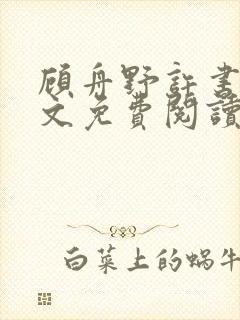 顾舟野许书
文免费閱讀
白菜上的蜗牛